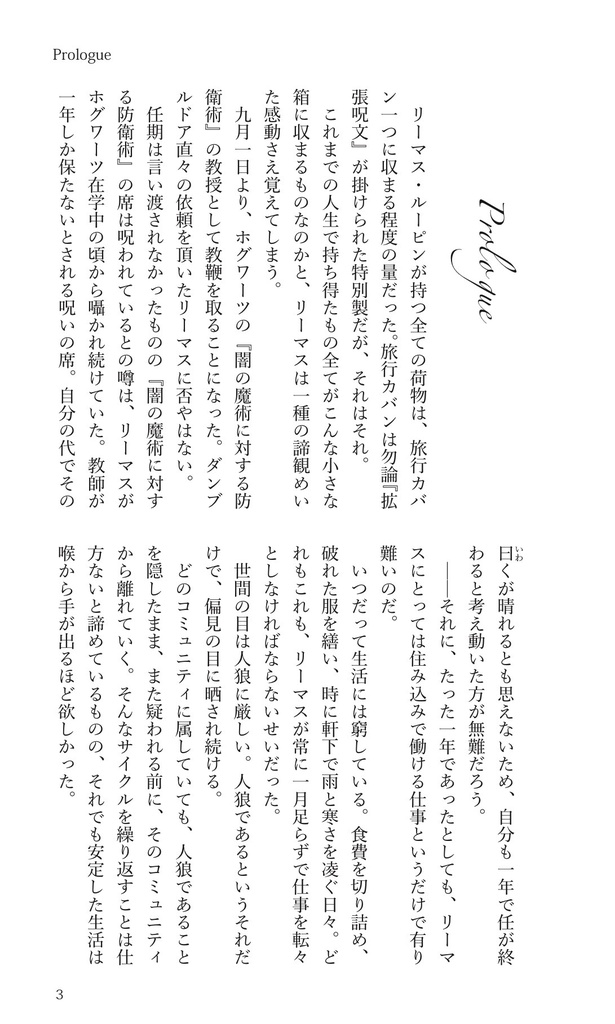 Prologue
Prologue
リーマス・ルーピンが持つ全ての荷物は、旅行カバ
ン一つに収まる程度の量だった。旅行カバンは勿論『拡
張呪文』が掛けられた特別製だが、それはそれ。
これまでの人生で持ち得たもの全てがこんな小さな
箱に収まるものなのかと、リーマスは一種の諦観めい
た感動さえ覚えてしまう。
九月一日より、ホグワーツの『闇の魔術に対する防
衛術』の教授として教鞭を取ることになった。ダンブ
ルドア直々の依頼を頂いたリーマスに否やはない。
任期は言い渡されなかったものの『闇の魔術に対す
る防衛術』の席は呪われているとの噂は、リーマスが
ホグワーツ在学中の頃から囁かれ続けていた。教師が
一年しか保たないとされる呪いの席。自分の代でその
曰くが晴れるとも思えないため、自分も一年で任が終
いわ
わると考え動いた方が無難だろう。
――それに、たった一年であったとしても、リーマ
スにとっては住み込みで働ける仕事というだけで有り
難いのだ。
いつだって生活には窮している。食費を切り詰め、
破れた服を繕い、時に軒下で雨と寒さを凌ぐ日々。ど
れもこれも、リーマスが常に一月足らずで仕事を転々
としなければならないせいだった。
世間の目は人狼に厳しい。人狼であるというそれだ
けで、偏見の目に晒され続ける。
どのコミュニティに属していても、人狼であること
を隠したまま、また疑われる前に、そのコミュニティ
から離れていく。そんなサイクルを繰り返すことは仕
方ないと諦めているものの、それでも安定した生活は
喉から手が出るほど欲しかった。
3